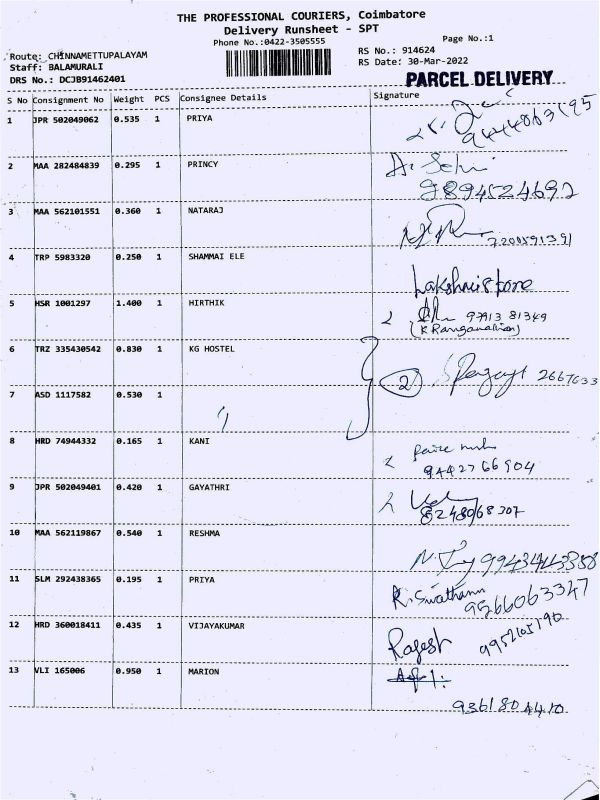 THE PROFESSIONAL COURIERS, Coimbatore
Delivery Runsheet - SPT
Phone No.:0422-3505555
Page No.:1
Route: CHINNAMETTUPALAYAM
RS No.: 914624
Staff: BALAMURALI
RS Date: 30-Mar-2022
DRS No.: DCJB91462401
PARCEL DELIVERY
S No Consignment No Weight PCS Consignee Details Signature
1 JPR 502049062 0.535 1 PRIYA
2 MAA 282484839 0.295 1 PRINCY
9894524692
3 MAA 562101551 0.360 1 NATARAJ
7200591391
4 TRP 5983320 0.250 1 SHAMMAI ELE
Lakshmi Store
5 HSR 1001297 1.400 1 HIRTHIK
97913 81349
(K Ranganathan)
6 TRZ 335430542 0.830 1 KG HOSTEL
2 2667633
7 ASD 1117582 0.530 1
8 HRD 74944332 0.165 1 KANI
9442766904
9 JPR 502049401 0.420 1 GAYATHRI
8248068307
10 MAA 562119867 0.540 1 RESHMA
11 SLM 292438365 0.195 1 PRIYA
R. Swathann
9566063347
12 HRD 360018411 0.435 1 VIJAYAKUMAR
Rajesh 9952105190
13 VLI 165006 0.950 1 MARION
9361804410